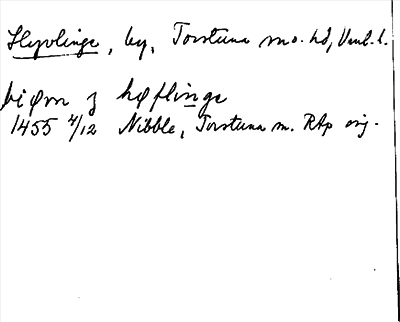 Hyvlinge, by, Torstuna sn o. hd, Vml. l.
biørn j høflinge
1455 4/12 Nibble, Torstuna sn. RAp orig.